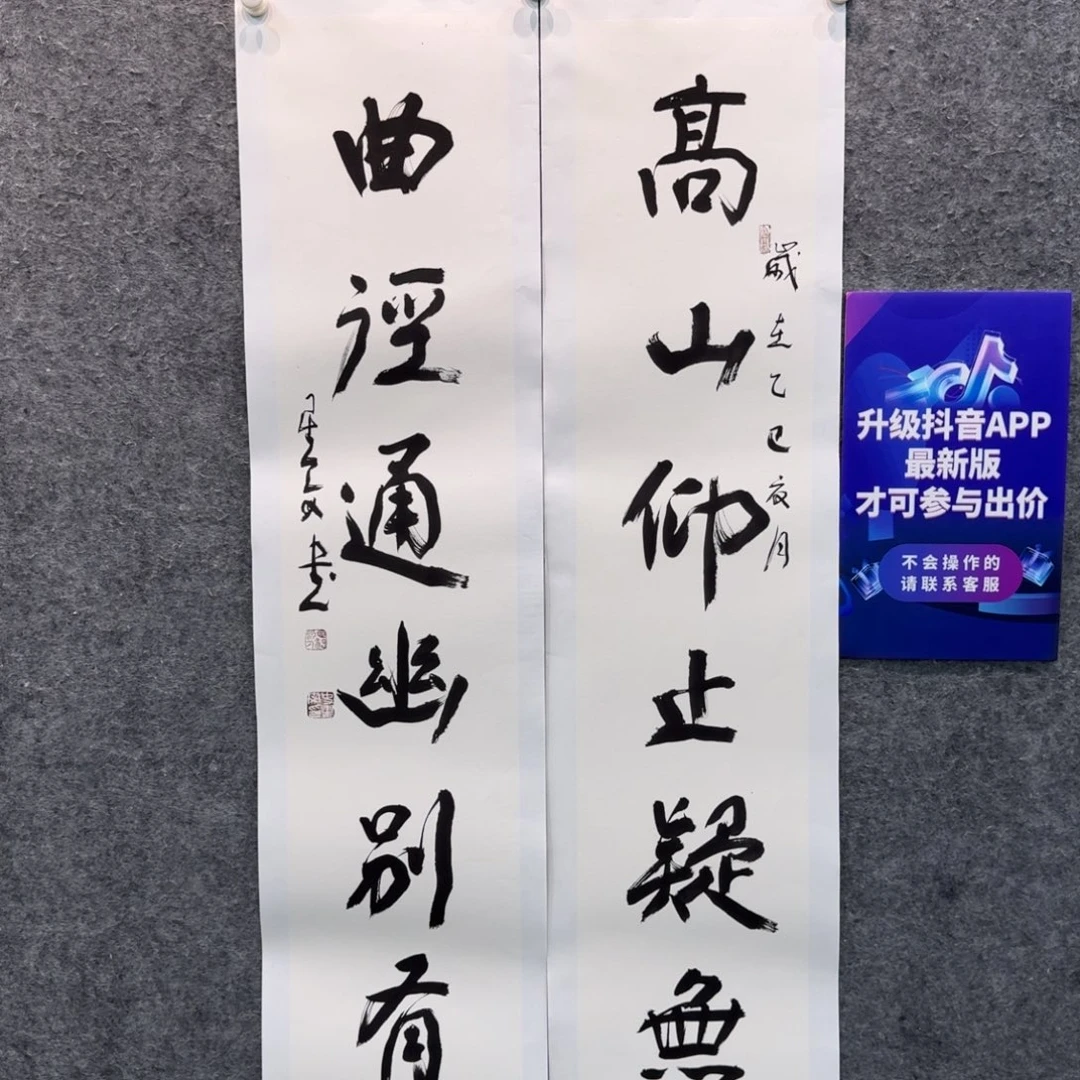 高山仰止疑無
歲在乙巳夜月
曲徑通幽別有
升级抖音APP
最新版
才可参与出价
不会操作的
请联系客服